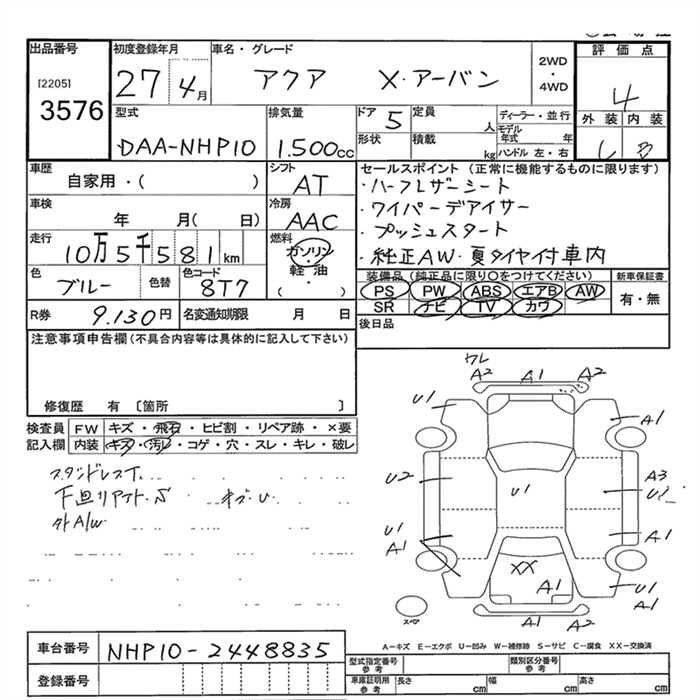 出品番号
[2205]
3576
初度登録年月
27 4月
車名・グレード
アクア X・アーバン
2WD
・
4WD
評価点
4
外装 内装
B
型式
DAA-NHP10
排気量
1.500cc
ドア 5
定員 人
形状
積載 kg
ディーラー・並行
モデル年式 年
ハンドル 左・右
車歴
自家用・( )
シフト
AT
車検
年 月( 日)
冷房
AAC
走行
10万5千581km
燃料
ガソリン
・
軽油
( ・ )
色
ブルー
色替
色コード
8T7
R券 9.130円
名変通知期限 月 日
セールスポイント (正常に機能するものに限ります)
・ハーフレザーシート
・ワイパーデアイサー
・プッシュスタート
・純正AW・夏タイヤ付車内
装備品 (純正品に限り○をつけてください)
PS PW ABS エアB AW
SR ナビ TV カワ
新車保証書
有・無
後日品
注意事項申告欄(不具合内容等は具体的に記入して下さい)
修復歴 有 〔箇所 〕
検査員記入欄
FW キズ・飛石・ヒビ割・リペア跡・×要
内装 キズ・汚レ・コゲ・穴・スレ・キレ・破レ
スタッドレスT.
下廻リ S キズ・U
外A/W
ウレ
A2 A1 A2
U1
A1
U2
U1
A3
U1
U1
A1
A1
XX
A1
U1
A1
A1 A2
スペア
A－キズ E－エクボ U－凹み W－補修跡 S－サビ C－腐食 XX－交換済
車台番号 NHP10-2448835
登録番号
型式指定番号
参考
類別区分番号
参考
車庫証明用
参考
長さ cm 幅 cm 高さ cm